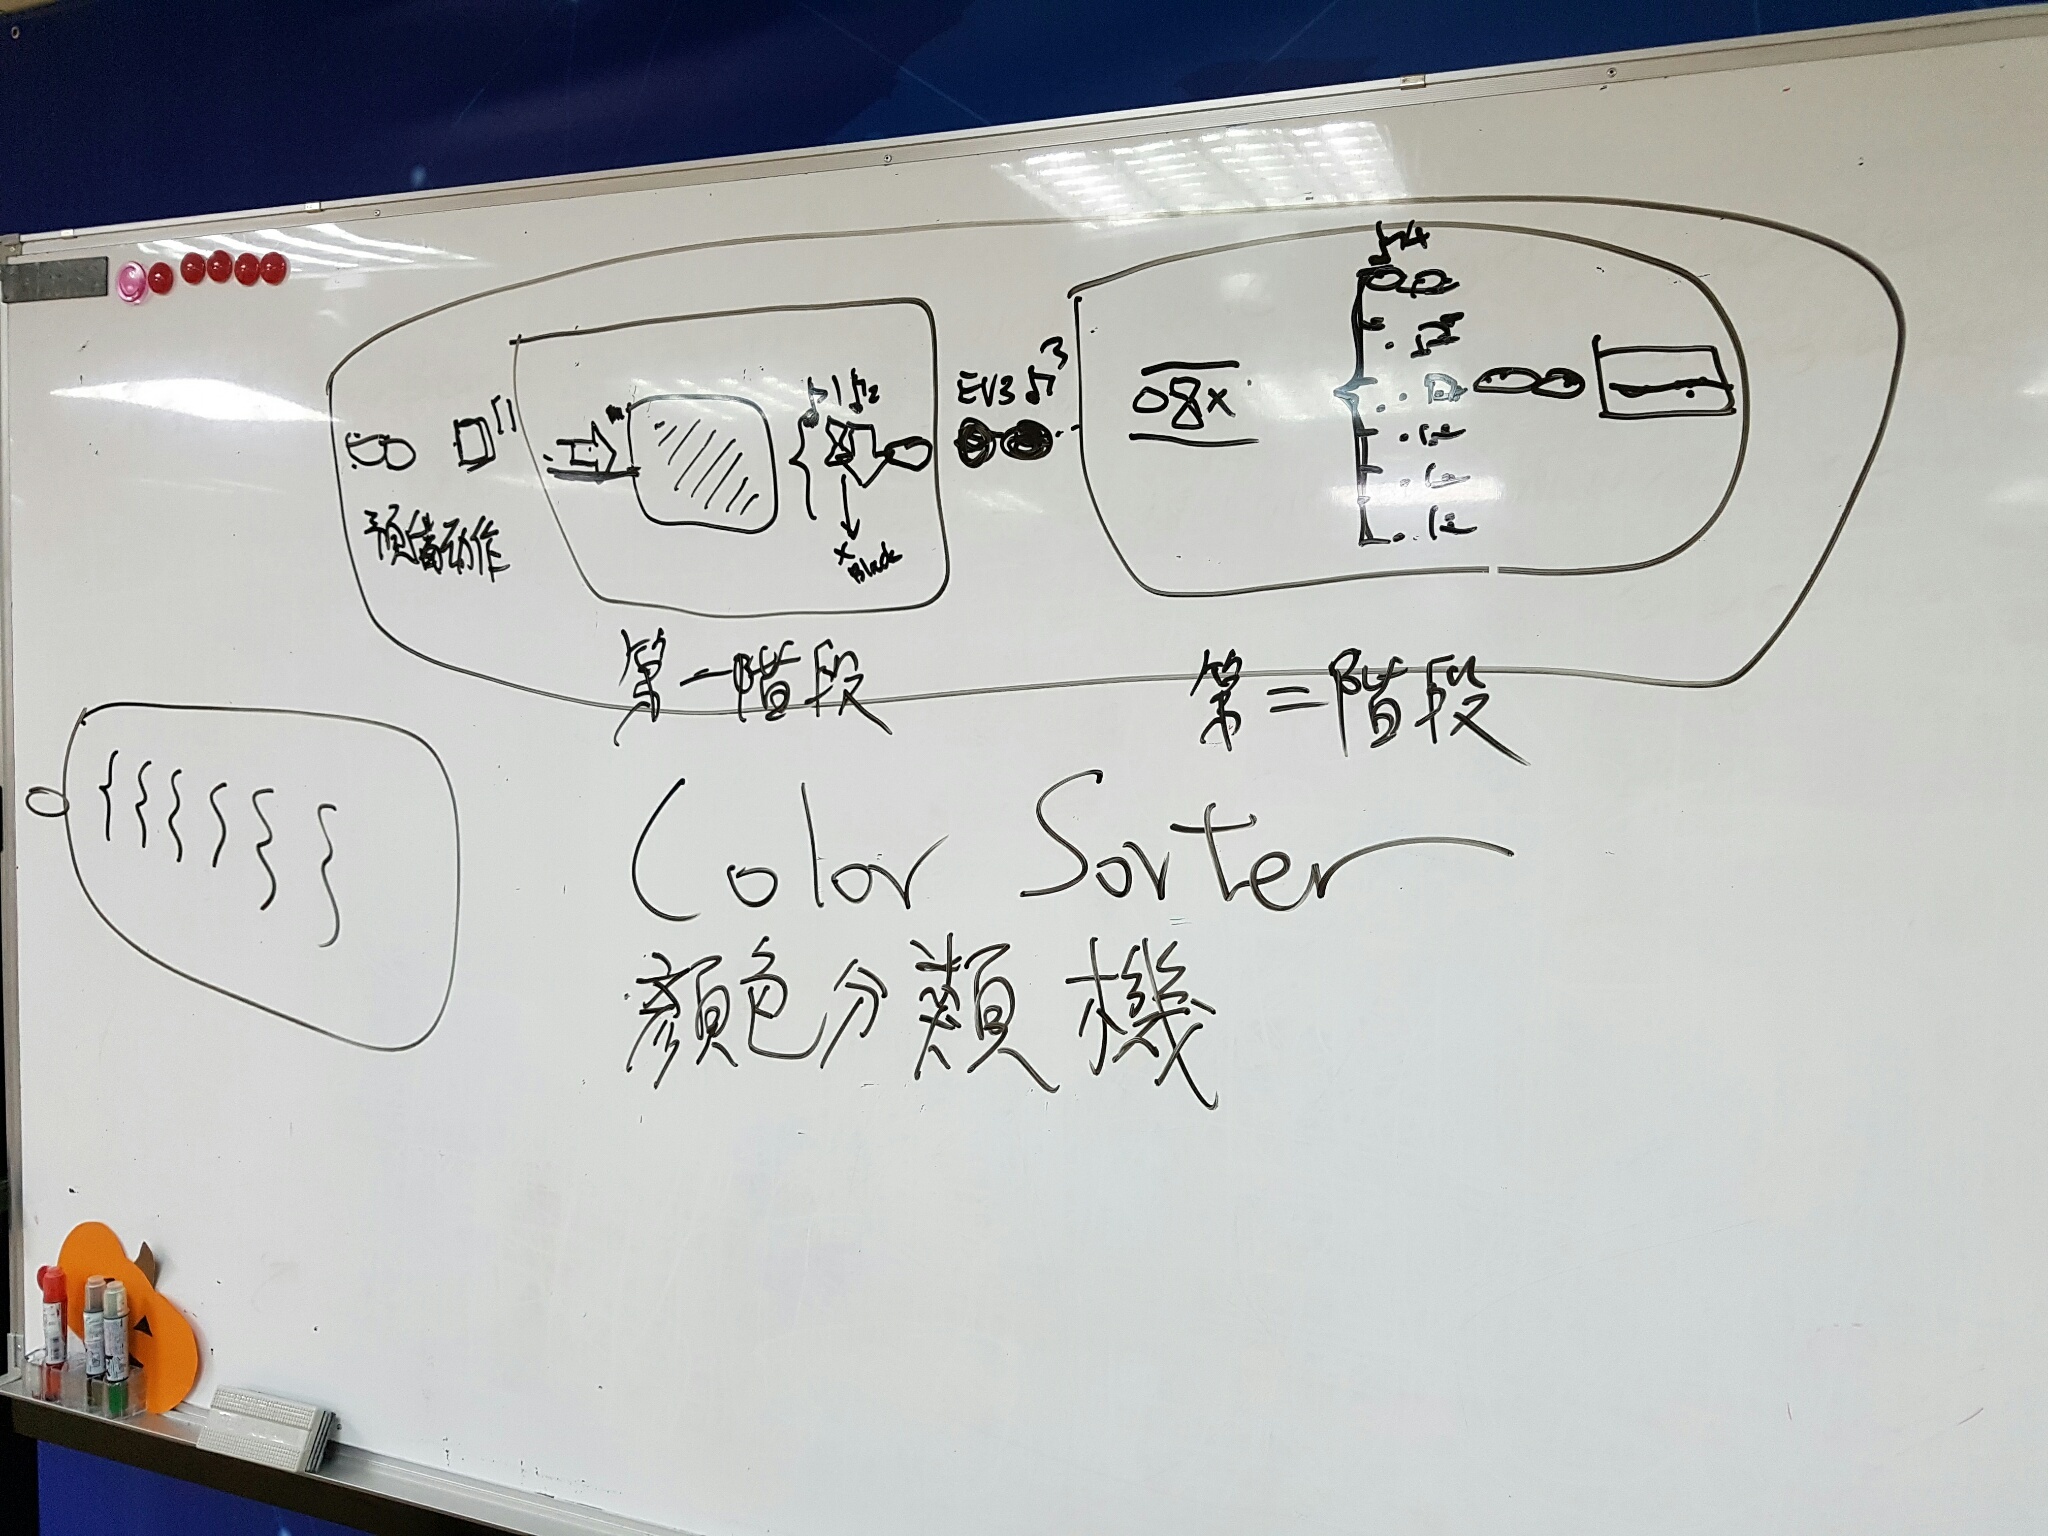 EV3 ♫3
08x
♫1 ♫2
♫4
預備动作
x
Black
第一階段
第二階段
Color Sorter
顏色分類機